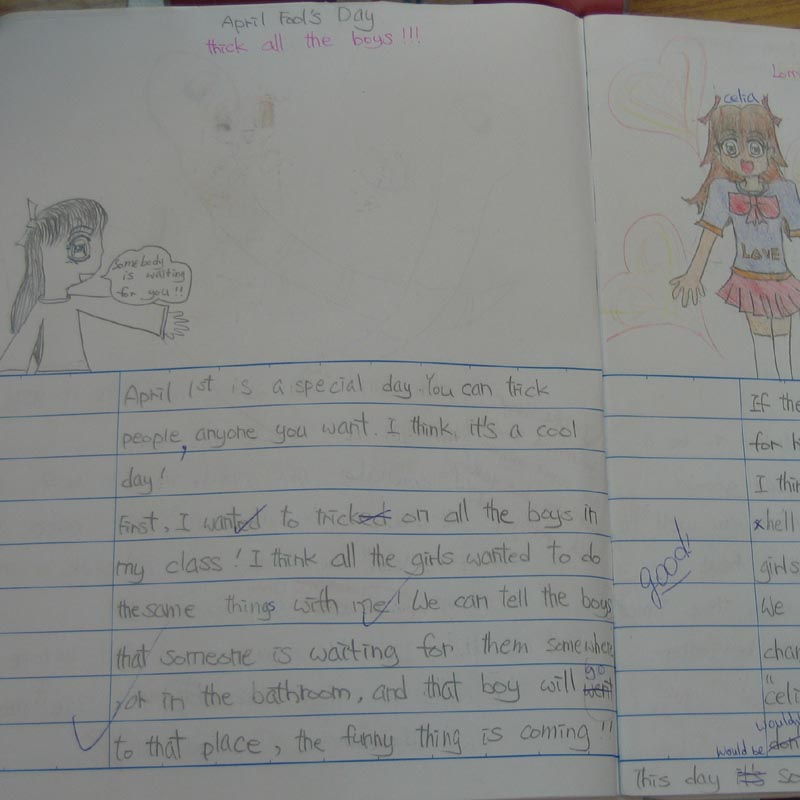 April Fool's Day
thick all the boys!!!
Somebody
is waiting
for you!!
April 1st is a special day. You can trick
people, anyone you want. I think, it's a cool
day!
First, I wanted to tricked on all the boys in
my class! I think all the girls wanted to do
the same things with me! We can tell the boys
that someone is waiting for them somewhere
or in the bathroom, and that boy will went go
to that place, the funny thing is coming!!
celia
LOVE
good!
If the
for h
I thin
hell
girls
We
chan
"celi
would be
This day it's so